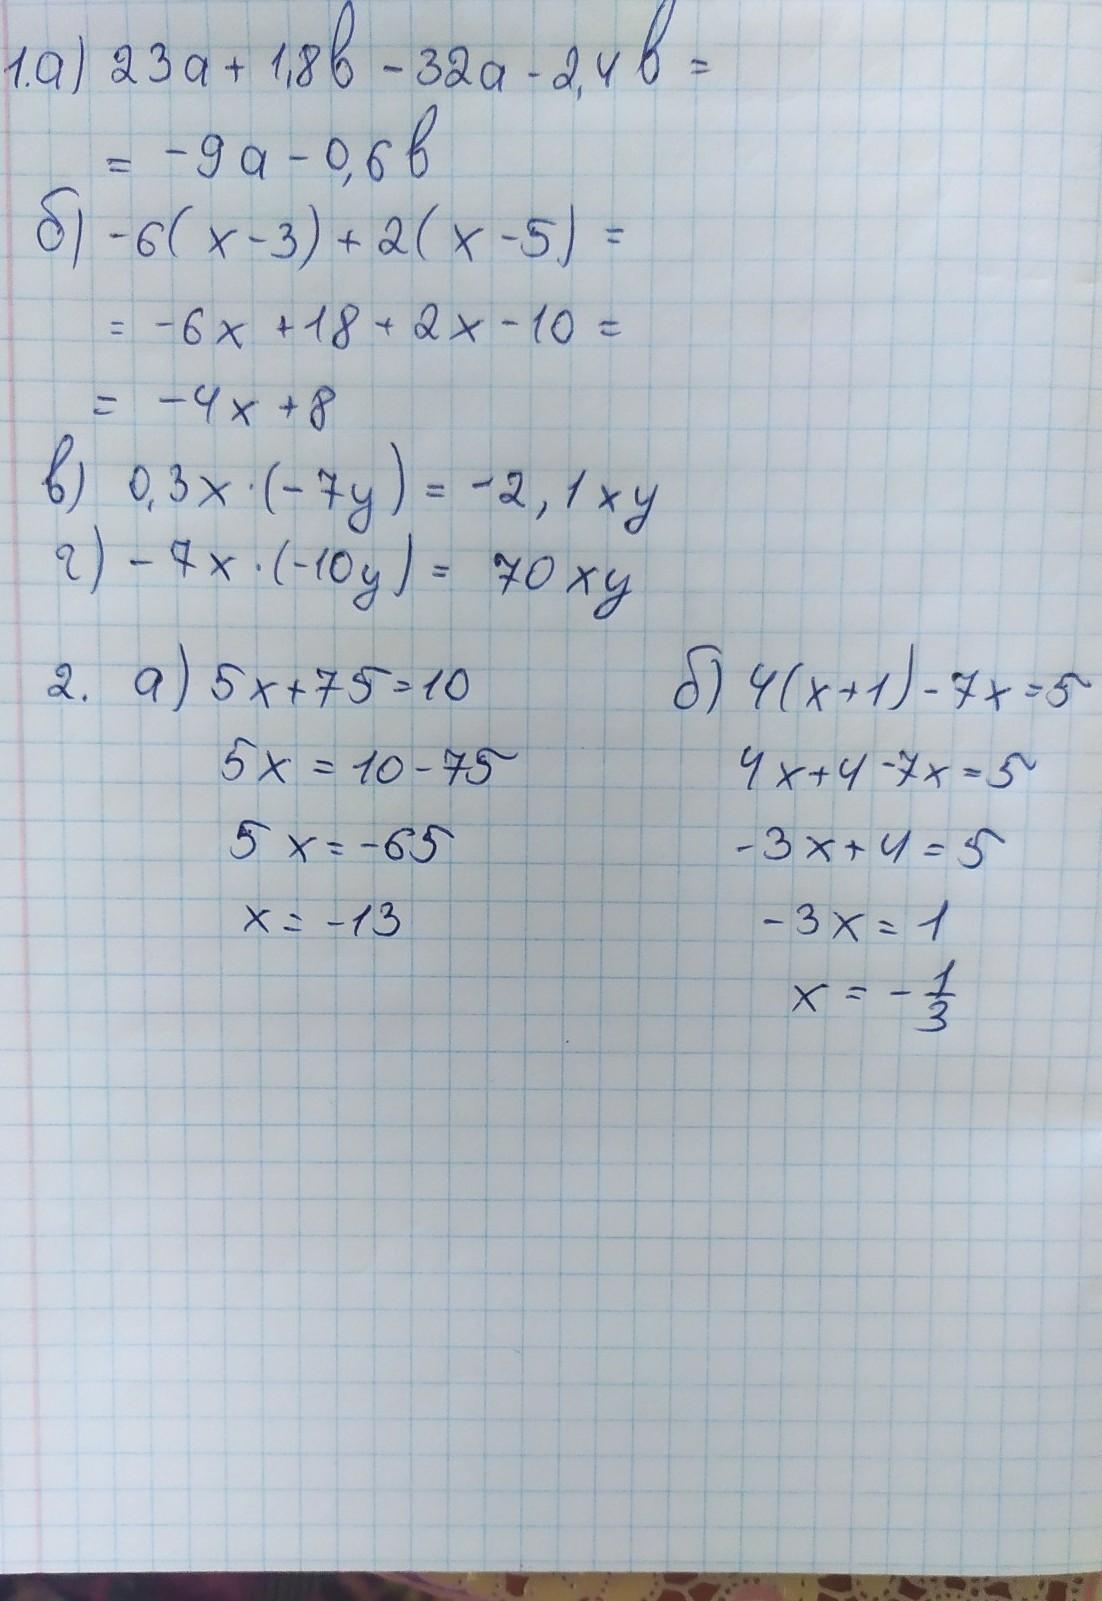 1.а) 23а + 1,8в - 32а - 2,4в =
= -9а - 0,6в
б) -6(x-3)+2(x-5) =
= -6x +18 + 2x - 10 =
= -4x +8
в) 0,3x·(-7y) = -2,1xy
г) -7x·(-10y) = 70xy
2. а) 5x+75=10
5x = 10-75
5x = -65
x = -13
б) 4(x+1)-7x=5
4x+4-7x=5
-3x+4=5
-3x=1
x = -1/3